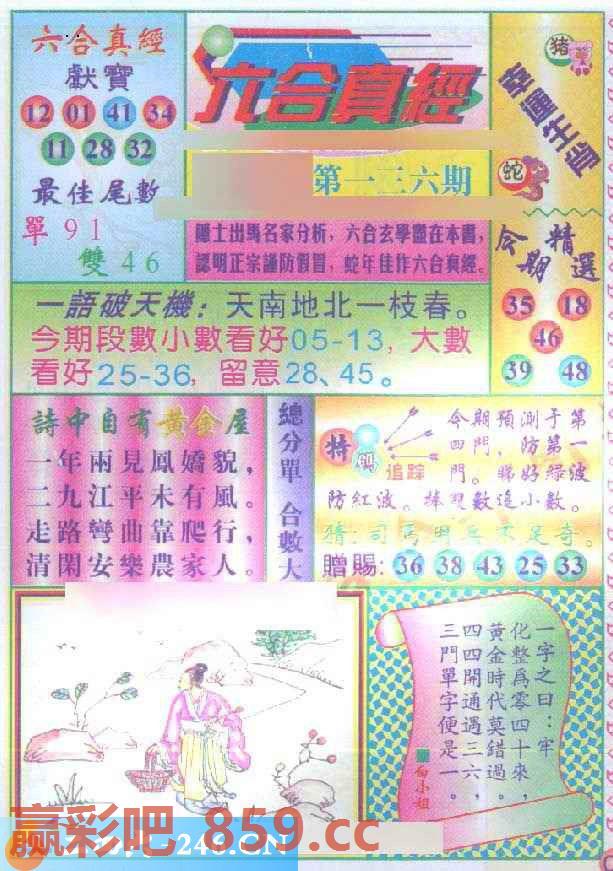 六合真經
獻寶
12 01 41 34
11 28 32
最佳尾數
單91
雙46
六合真經
第一三六期
隱士出馬名家分析，六合玄學盡在本書，
認明正宗謹防假冒，蛇年佳作六合真經。
豬
蛇
今期精選
35 18
46
39 48
一語破天機：天南地北一枝春。
今期段數小數看好05-13，大數
看好25-36，留意28、45。
詩中自有黃金屋
一年兩見鳳嬌貌，
二九江平未有風。
走路彎曲靠爬行，
清閑安樂農家人。
總分單 合數大
特碼
追踪
今期預測于第
四門，防第一
門。睇好綠波
防紅波。捧双數追小數。
猜：司馬用兵不足奇。
贈賜：36 38 43 25 33
一字之曰：牢
化整爲零四十來，
黃金時代莫錯過。
四四開通遇三六，
三門單字便是一。
白小姐
赢彩吧 859.cc
246.CN